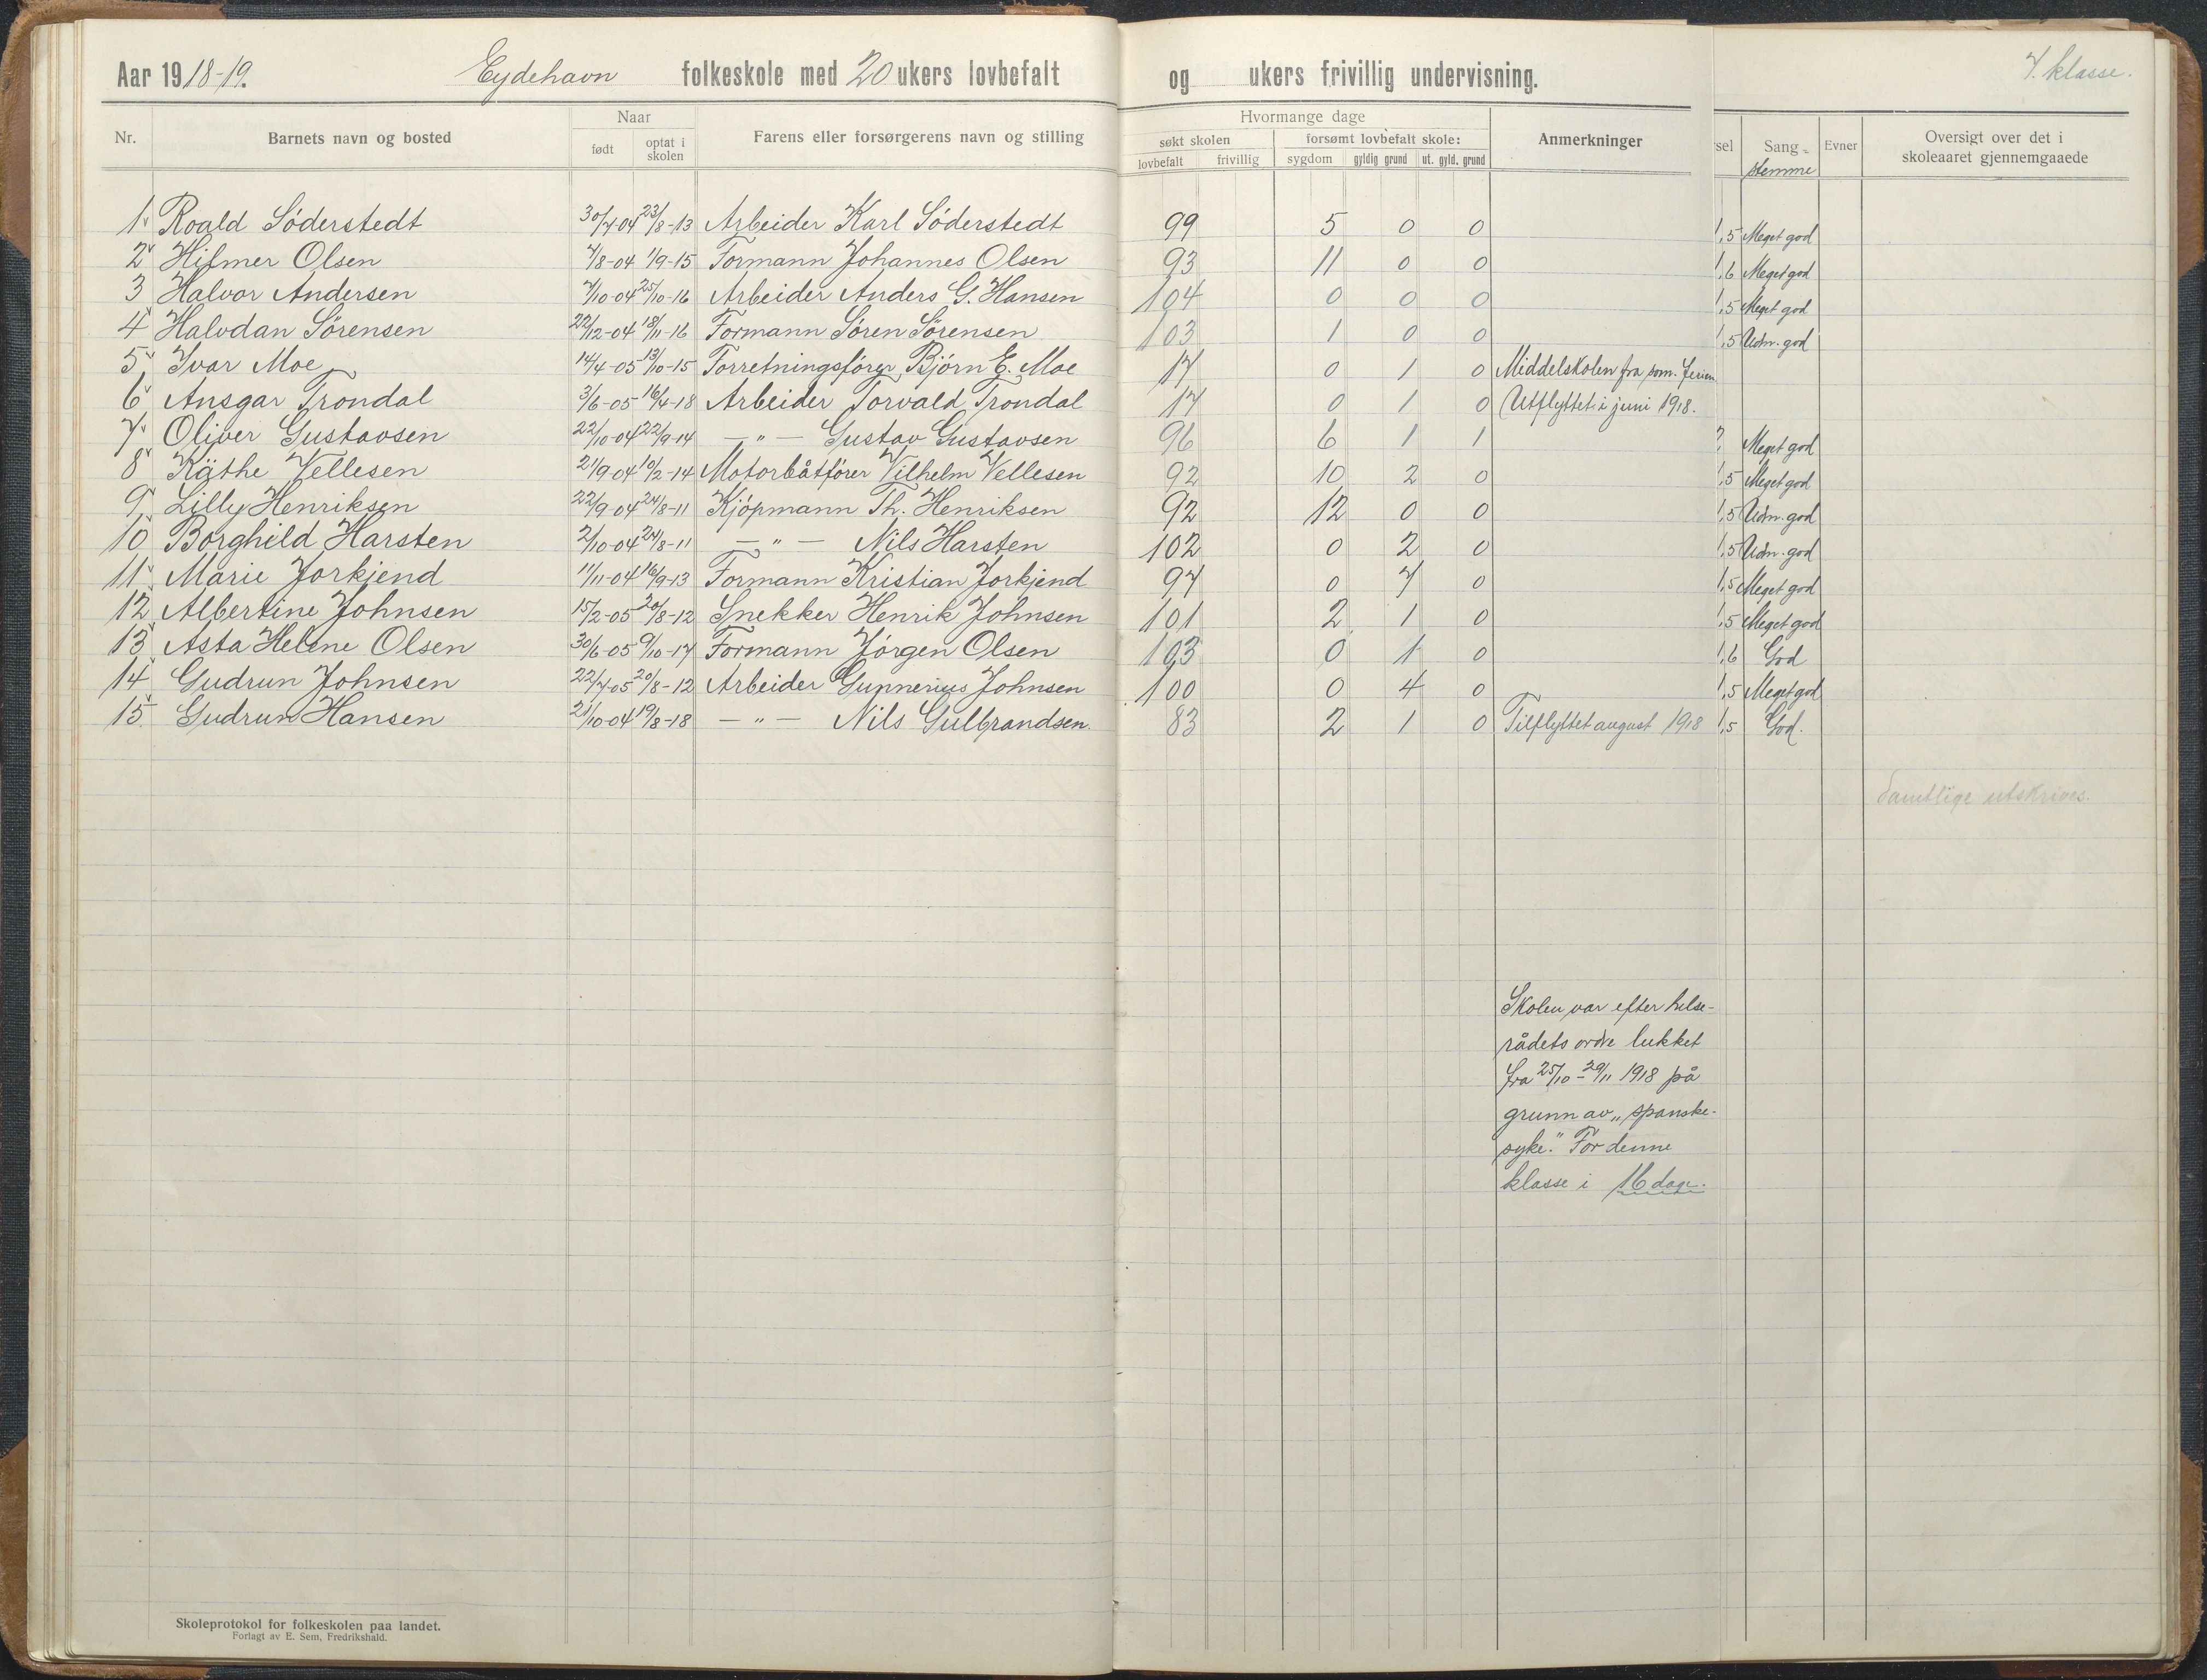 Aar 1918-19. Eydehavn folkeskole med 20 ukers lovbefalt og ukers frivillig undervisning. 7. klasse.
Nr. Barnets navn og bosted Naar født optat i skolen Farens eller forsørgerens navn og stilling Hvormange dage søkt skolen lovbefalt frivillig forsømt lovbefalt skole: sygdom gyldig grund ut. gyld. grund Anmerkninger sel Sang- stemme Evner Oversigt over det i skoleaaret gjennemgaaede
1 Roald Söderstedt 30/7-04 23/8-13 Arbeider Karl Söderstedt 99 5 0 0 1,5 Meget god
2 Hilmer Olsen 7/8-04 1/9-15 Formann Johannes Olsen 93 11 0 0 1,6 Meget god
3 Halvor Andersen 7/10-04 25/10-16 Arbeider Anders G. Hansen 104 0 0 0 1,5 Meget god
4 Halvdan Sörensen 22/12-04 18/11-16 Formann Sören Sörensen 103 1 0 0 1,5 Udm. god
5 Ivar Moe 14/4-05 13/10-15 Forretningsfører Bjørn E. Moe 17 0 1 0 Middelskolen fra som. ferien
6 Ansgar Trondal 3/6-05 16/4-18 Arbeider Torvald Trondal 17 0 1 0 Utflyttet i juni 1918.
7 Oliver Gustavsen 22/10-04 22/9-14 — " — Gustav Gustavsen 96 6 1 1 2, Meget god
8 Käthe Vellesen 21/9-04 10/2-14 Motorbåtfører Vilhelm Vellesen 92 10 2 0 1,5 Meget god
9 Lilly Henriksen 22/9-04 24/8-11 Kjøpmann Th. Henriksen 92 12 0 0 1,5 Udm. god
10 Borghild Harsten 2/10-04 24/8-11 — " — Nils Harsten 102 0 2 0 1,5 Udm. god
11 Marie Jorkjend 11/11-04 16/9-13 Formann Kristian Jorkjend 97 0 7 0 1,5 Meget god
12 Albertine Johnsen 15/2-05 20/8-12 Snekker Henrik Johnsen 101 2 1 0 1,5 Meget god
13 Asta Helene Olsen 30/6-05 9/10-17 Formann Jörgen Olsen 103 0 1 0 1,6 God
14 Gudrun Johnsen 22/7-05 20/8-12 Arbeider Gunnerius Johnsen 100 0 4 0 1,5 Meget god
15 Gudrun Hansen 21/10-04 19/8-18 — " — Nils Gulbrandsen. 83 2 1 0 Tilflyttet august 1918 1,5 God.
Samtlige utskrives.
Skolen var efter helse-
rådets ordre lukket
fra 25/10-29/11 1918 på
grunn av „spanske-
syke." For denne
klasse i 16 dage.
Skoleprotokol for folkeskolen paa landet.
Forlagt av E. Sem, Fredrikshald.